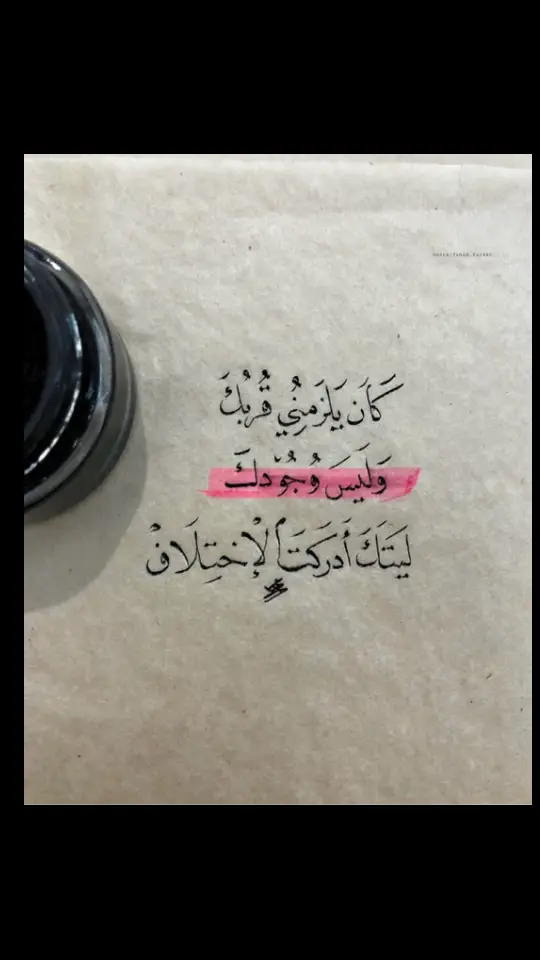 كَانَ يَلزَمنِي قُربُكَ
وَلَيسَ وُجُودكَ
لَيتَكَ أَدرَكتَ الإْختِلَافْ